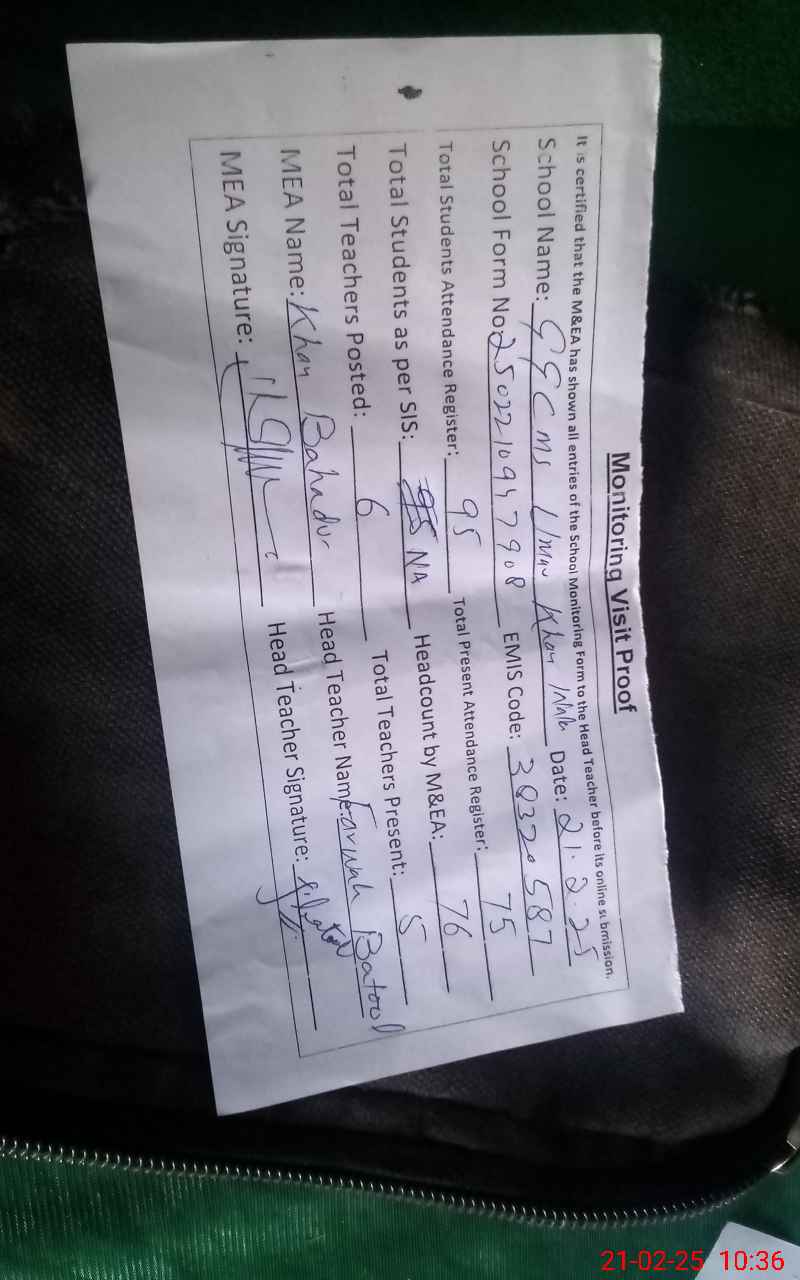 Monitoring Visit Proof
It is certified that the M&EA has shown all entries of the School Monitoring Form to the Head Teacher before its online submission.
School Name: GGCMS Umar Khan Date: 21.2.25
School Form No: 2502210947908 EMIS Code: 38320587
Total Students Attendance Register: 95 Total Present Attendance Register: 75
Total Students as per SIS: NA Headcount by M&EA: 76
Total Teachers Posted: 6 Total Teachers Present: 5
MEA Name: Khan Bahadur Head Teacher Name: Farwah Batool
MEA Signature: Head Teacher Signature:
21-02-25 10:36